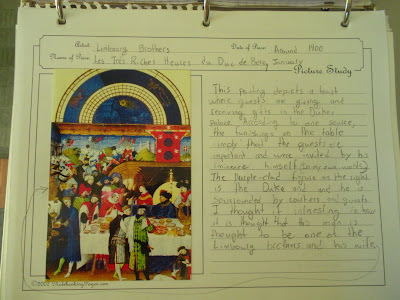 Artist: Limbourg Brothers
Date of Piece: Around 1400
Name of Piece: Les Très Riches Heures du Duc de Berry, January
Picture Study
This painting depicts a feast
where guests are giving and
receiving gifts in the Duke's
palace. According to one source,
the furnishings on the table
imply that the guests are
important and were invited by his
himself
The purple-clad figure on the right
is the Duke and and he is
surrounded by courtiers and guests.
I thought it interesting is how
it is thought that this man is
thought to be one of the
Limbourg brothers and his wife.
©2002